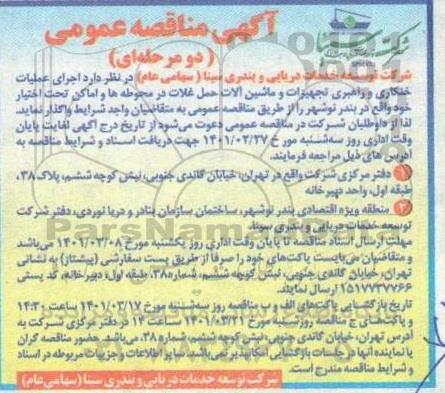 آگهی مناقصه عمومی
( دو مرحله‌ای)
شرکت توسعه خدمات دریایی و بندری سینا ( سهامی عام) در نظر دارد اجرای عملیات
خنکاری و راهبری تجهیزات و ماشین آلات حمل غلات در محوطه ها و اماکن تحت اختیار
خود واقع در بندر نوشهر را از طریق مناقصه عمومی به متقاضیان واجد شرایط واگذار نماید.
لذا از داوطلبان شرکت در مناقصه عمومی دعوت می‌شود از تاریخ درج آگهی لغایت پایان
وقت اداری روز سه‌شنبه مورخ ۱۴۰۱/۰۲/۲۷ جهت دریافت اسناد و شرایط مناقصه به
آدرس های ذیل مراجعه فرمایند.
۱ دفتر مرکزی شرکت واقع در تهران، خیابان گاندی جنوبی، نبش کوچه ششم، پلاک ۳۸،
طبقه اول، واحد دبیرخانه
۲ منطقه ویژه اقتصادی بندر نوشهر، ساختمان سازمان بنادر و دریانوردی، دفتر شرکت
توسعه خدمات دریایی و بندری سینا.
مهلت ارسال اسناد مناقصه تا پایان وقت اداری روز یکشنبه مورخ ۱۴۰۱/۰۳/۰۸ می‌باشد
و متقاضیان می‌بایست پاکت‌های خود را صرفا از طریق پست سفارشی (پیشتاز) به نشانی
تهران، خیابان گاندی جنوبی، نبش کوچه ششم، شماره ۳۸، طبقه اول، دبیرخانه، کد پستی
۱۵۱۷۷۳۷۷۶۶ ارسال نمایند.
تاریخ بازگشایی پاکت‌های الف و ب مناقصه روز سه‌شنبه مورخ ۱۴۰۱/۰۳/۱۷ ساعت ۱۴:۳۰
و پاکت‌های ج مناقصه روز شنبه مورخ ۱۴۰۱/۰۳/۲۱ ساعت ۱۴ در دفتر مرکزی شرکت به
آدرس تهران، خیابان گاندی جنوبی، نبش کوچه ششم، شماره ۳۸، می‌باشد. حضور مناقصه گران
یا نماینده آنها در جلسات بازگشایی امکانپذیر نمی‌باشد. سایر اطلاعات و جزییات مربوطه در اسناد
و شرایط مناقصه مندرج است.
شرکت توسعه خدمات دریایی و بندری سینا (سهامی عام)